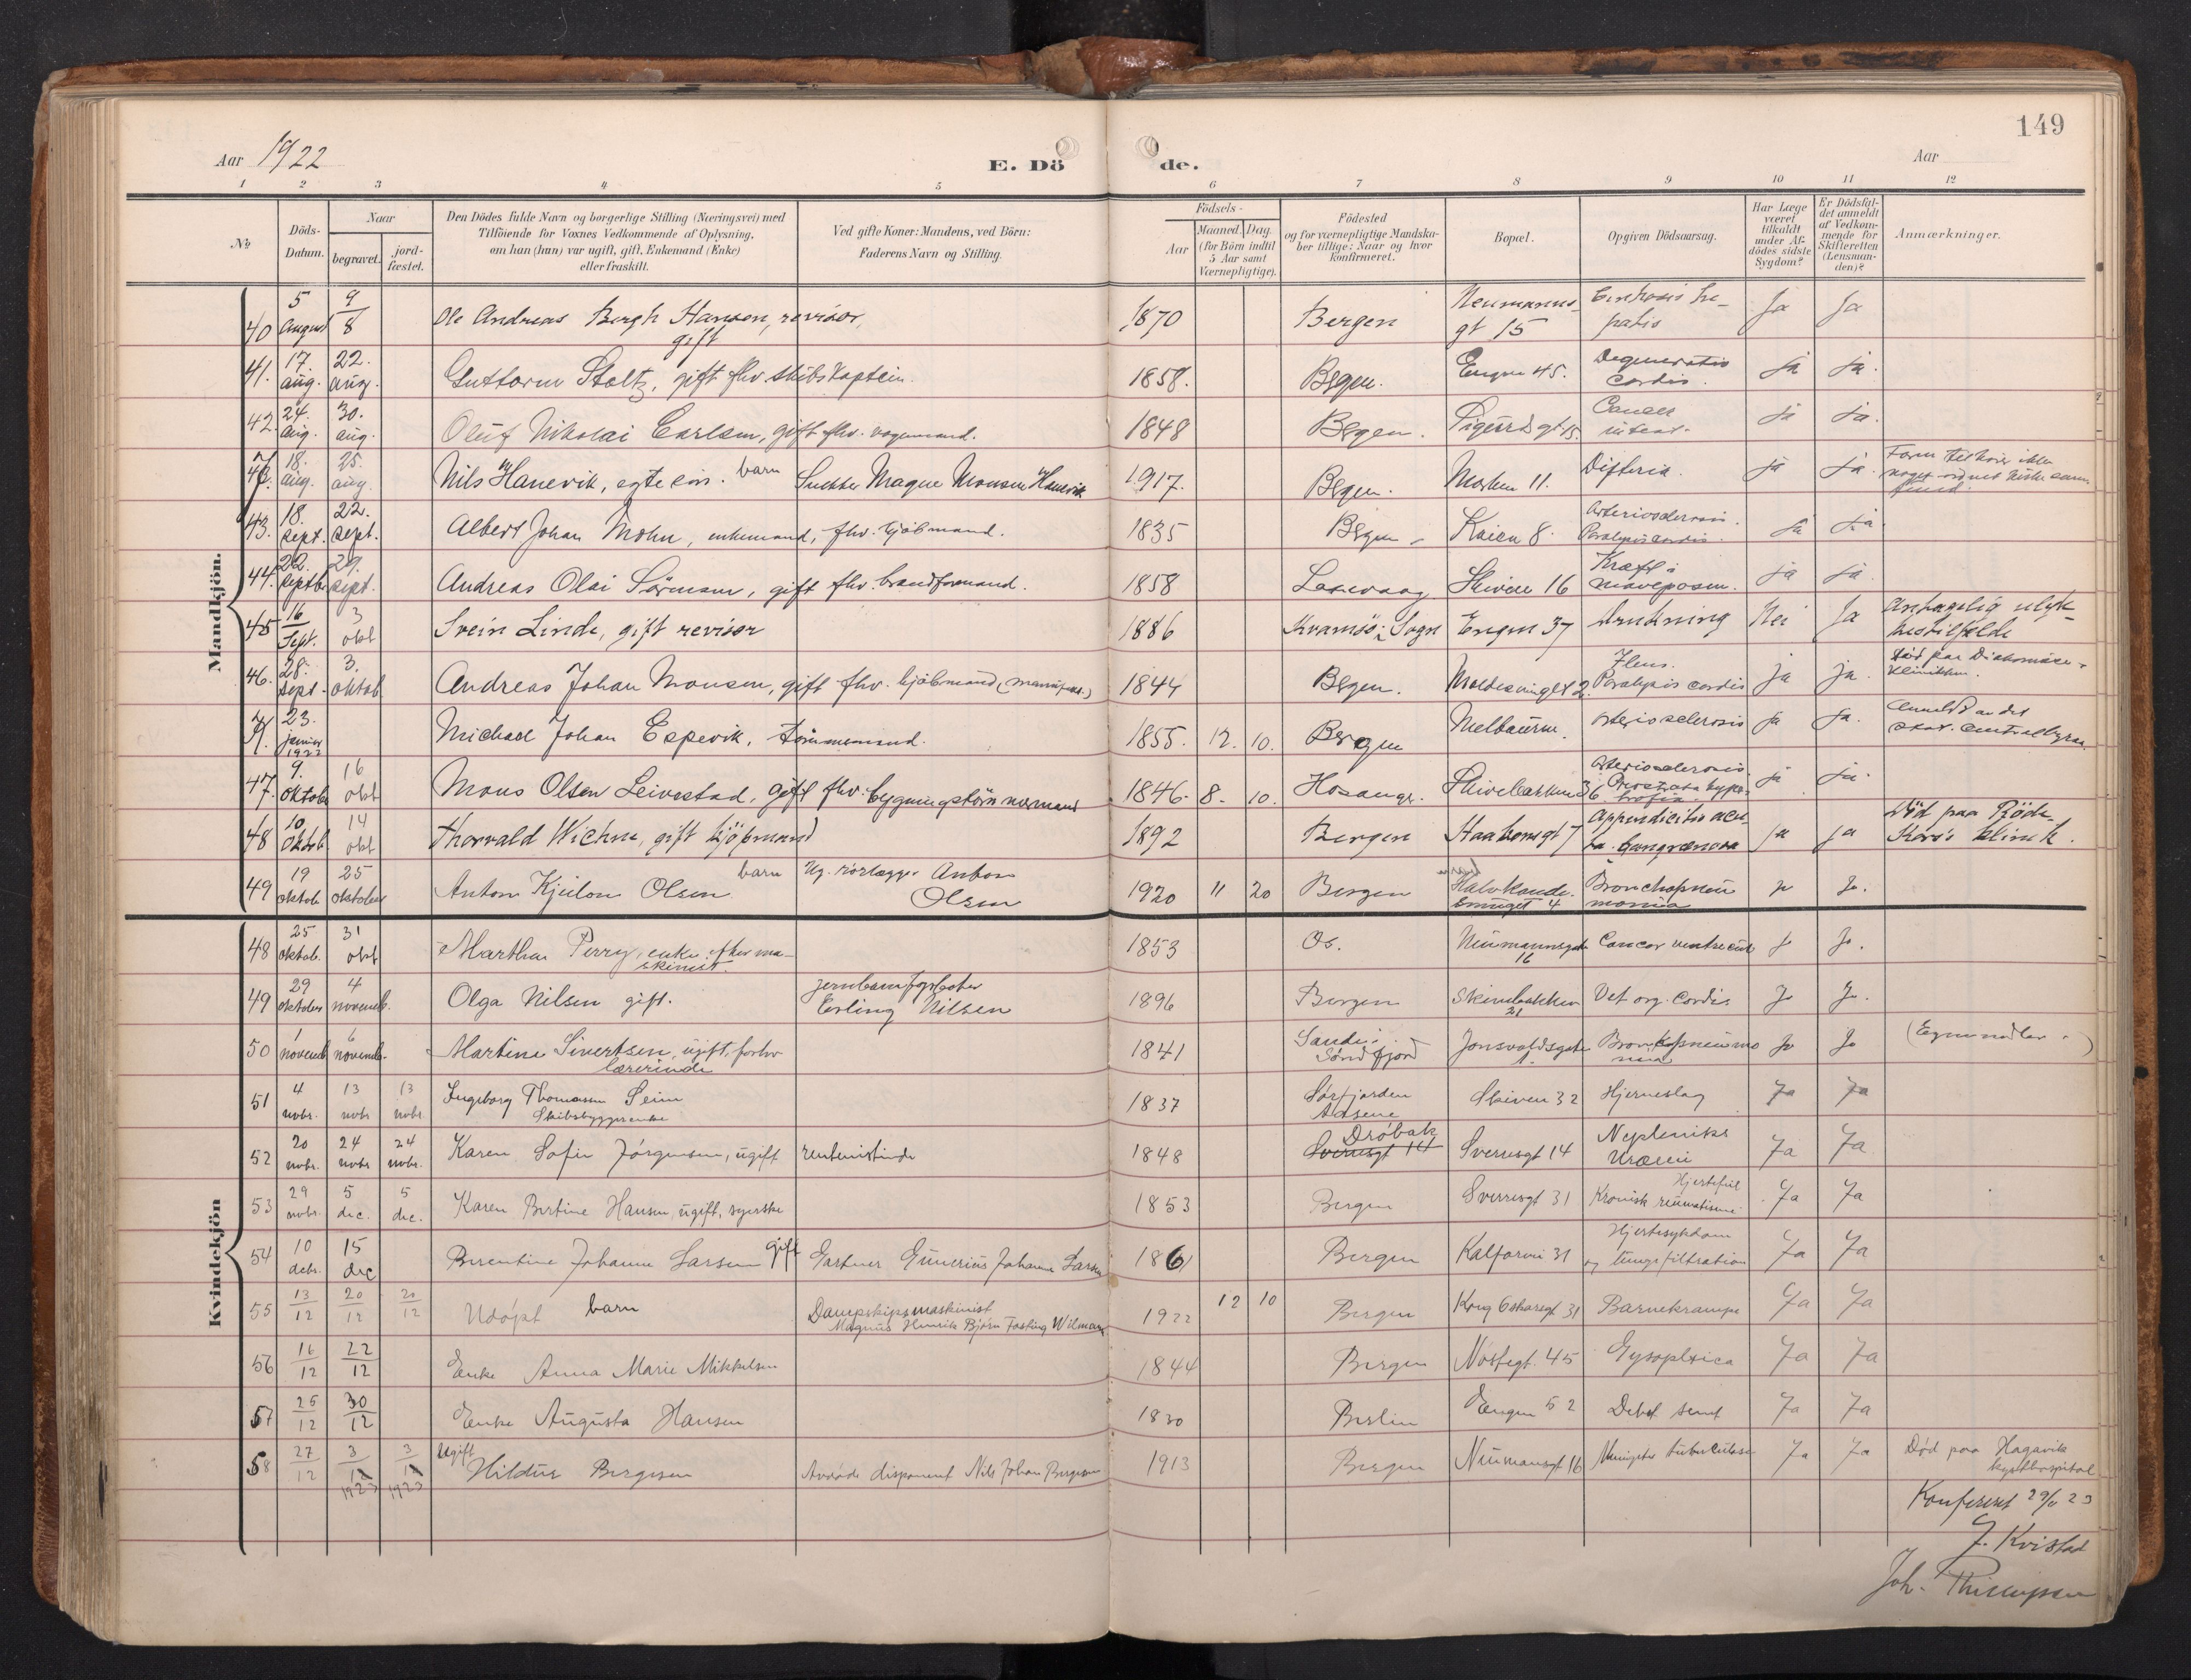 149
Aar 1922
E. Dö
de.
Aar
1 2 3 4 5 6 7 8 9 10 11 12
No
Döds-
Datum.
Naar
begravet.
jord-
fæstet.
Den Dödes fulde Navn og borgerlige Stilling (Næringsvei) med
Tilföiende for Voxnes Vedkommende af Oplysning,
om han (hun) var ugift, gift, Enkemand (Enke)
eller fraskilt.
Ved gifte Koner: Mandens, ved Börn:
Faderens Navn og Stilling.
Födsels-
Aar
Maaned. Dag.
(for Börn indtil
5 Aar samt
Værnepligtige).
Födested
og for værnepligtige Mandska-
ber tillige: Naar og hvor
konfirmeret.
Bopæl.
Opgiven Dödsaarsag.
Har Læge
været
tilkaldt
under Af-
dödes sidste
Sygdom?
Er Dödsfal-
det anmeldt
af Vedkom-
mende for
Skifteretten
(Lensman-
den)?
Anmærkninger.
Mandkjön.
40 5 august 9/8 Ole Andreas Bergh Hansen, revisor, gift 1870 Bergen Neumanns gt 15 Cirrhosis he- patis Ja Ja
41. 17. aug. 22. aug. Guttorm Stoltz, gift fhv. skibskaptein. 1858. Bergen. Engen 45. Degeneratio cordis. ja ja.
42. 24. aug. 30. aug. Oluf Nikolai Carlsen, gift fhv. vognmand. 1848 Bergen. Sigurdsgt 15. Cancer ja ja.
18. aug. 25. aug. Nils Hanevik, egte barn Magne Monsen Hanevik 1917. Bergen. Marken 11. Difteria. ja ja.
43. 18. sept. 22. sept. Albert Johan Mohn, enkemand, fhv. kjöbmand. 1835 Bergen Kaien 8. Arteriosclerosis. Paralysis cordis. ja ja.
44. 22. septbr 29. sept. Andreas Olai Sörensen, gift fhv. brandformand. 1858 Laxevaag Skiven 16 Kræft i maveposen. ja ja.
45 16 Sept. 3 okt Svein Linde, gift revisor 1886 Kvamsö i Sogn Engen 37 Drukning Nei Ja Antagelig ulyk- kestilfælde
46. 28. sept. 3. oktob Andreas Johan Monsen, gift fhv. kjöbmand 1844 Bergen. Ileus. Paralysis cordis ja ja. Död paa Diakonisse- klinikken.
23. 1922 Michael Johan Espevik, tömmermand. 1855. 12. 10. Bergen arteriosclerosis ja ja. Anmeldt av det stat. centralbyraa.
47. 9. oktob 16 okt Mons Olsen Leivestad, gift fhv. bygningstömmermand 1846. 8. 10. Hosanger. Skivebakken 36 Arteriosclerosis. Prostata hyper- trofia. ja ja.
48 10 oktob 14 okt Thorvald Wichne, gift kjöpmand 1892 Bergen Haakonsgt 7 Appendicitis acu- ta gangrænosa ja ja Död paa Röde Kors's klinik.
49 19 oktob 25 oktober Anton Kjeilon Olsen barn rörlægger Anton Olsen 1920 11 20 Bergen Halvkande- smuget 4 Bronchopneu- monia
Kvindekjön
48 25 oktob. 31 okt Martha Perry, enke efter ma- skinist. 1853 Os. Neumannsgate 16 Cancer ventriculi
49 29 oktober 4 novemb. Olga Nilsen gift. Erling Nilsen 1896 Bergen Skivebakken 21 Vet. org. cordis Ja Ja.
50 1 novemb 6 novemb. Martine Sivertsen, ugift, forhv lærerinde 1841 Sande i Söndfjord Jonsvoldsgate 1. Bronkopneumo nia Ja Ja
51 4 novbr. 13 novbr 13 novbr Ingeborg Thomasen Seim Skibsbyggerenke 1837 Sørfjorden Skiven 32 Hjerneslag Ja Ja
52 20 novbr. 24 novbr 24 novbr. Karen Sofie Jörgensen, ugift rentenistinde 1848 Drøbak Sverresgt 14 Sverresgt 14 Uræmi Ja Ja
53 29 novbr. 5 dec. 5 dec. Karen Bertine Hansen, ugift, syerske 1853 Bergen Sverresgt 31 Hjertefeil Kronisk reumatisme Ja Ja
54 10 decbr. 15 dec Berentine Johanne Larsen gift Gartner Gunerius Johannes Larsen 1861 Bergen Kalfarvei 31 Hjertesykdom og lungefiltration Ja Ja
55 13/12 20/12 20/12 Udöpt barn Dampskipsmaskinist Magnus Henrik Björn Fasting Wilmann 1922 12 10 Bergen Kong Oskarsgt 31 Barnekrampe Ja Ja
56 16/12 22/12 Enke Anna Marie Mikkelsen 1844 Bergen Nöstegt. 45 Ja Ja
57 25/12 30/12 Enke Augusta Hansen 1830 Berlin Engen 52 Debit. senil Ja Ja
58 27/12 3/1 1923 3/1 1923 Ugift Hildur Bergesen Avdöde disponent Nils Johan Bergesen 1913 Bergen Neumansgt 16 Meningitis tuberculosa Ja Ja Død paa Hagavik kysthospital
Konferert 29/11 23
J. Kvistad
Joh.